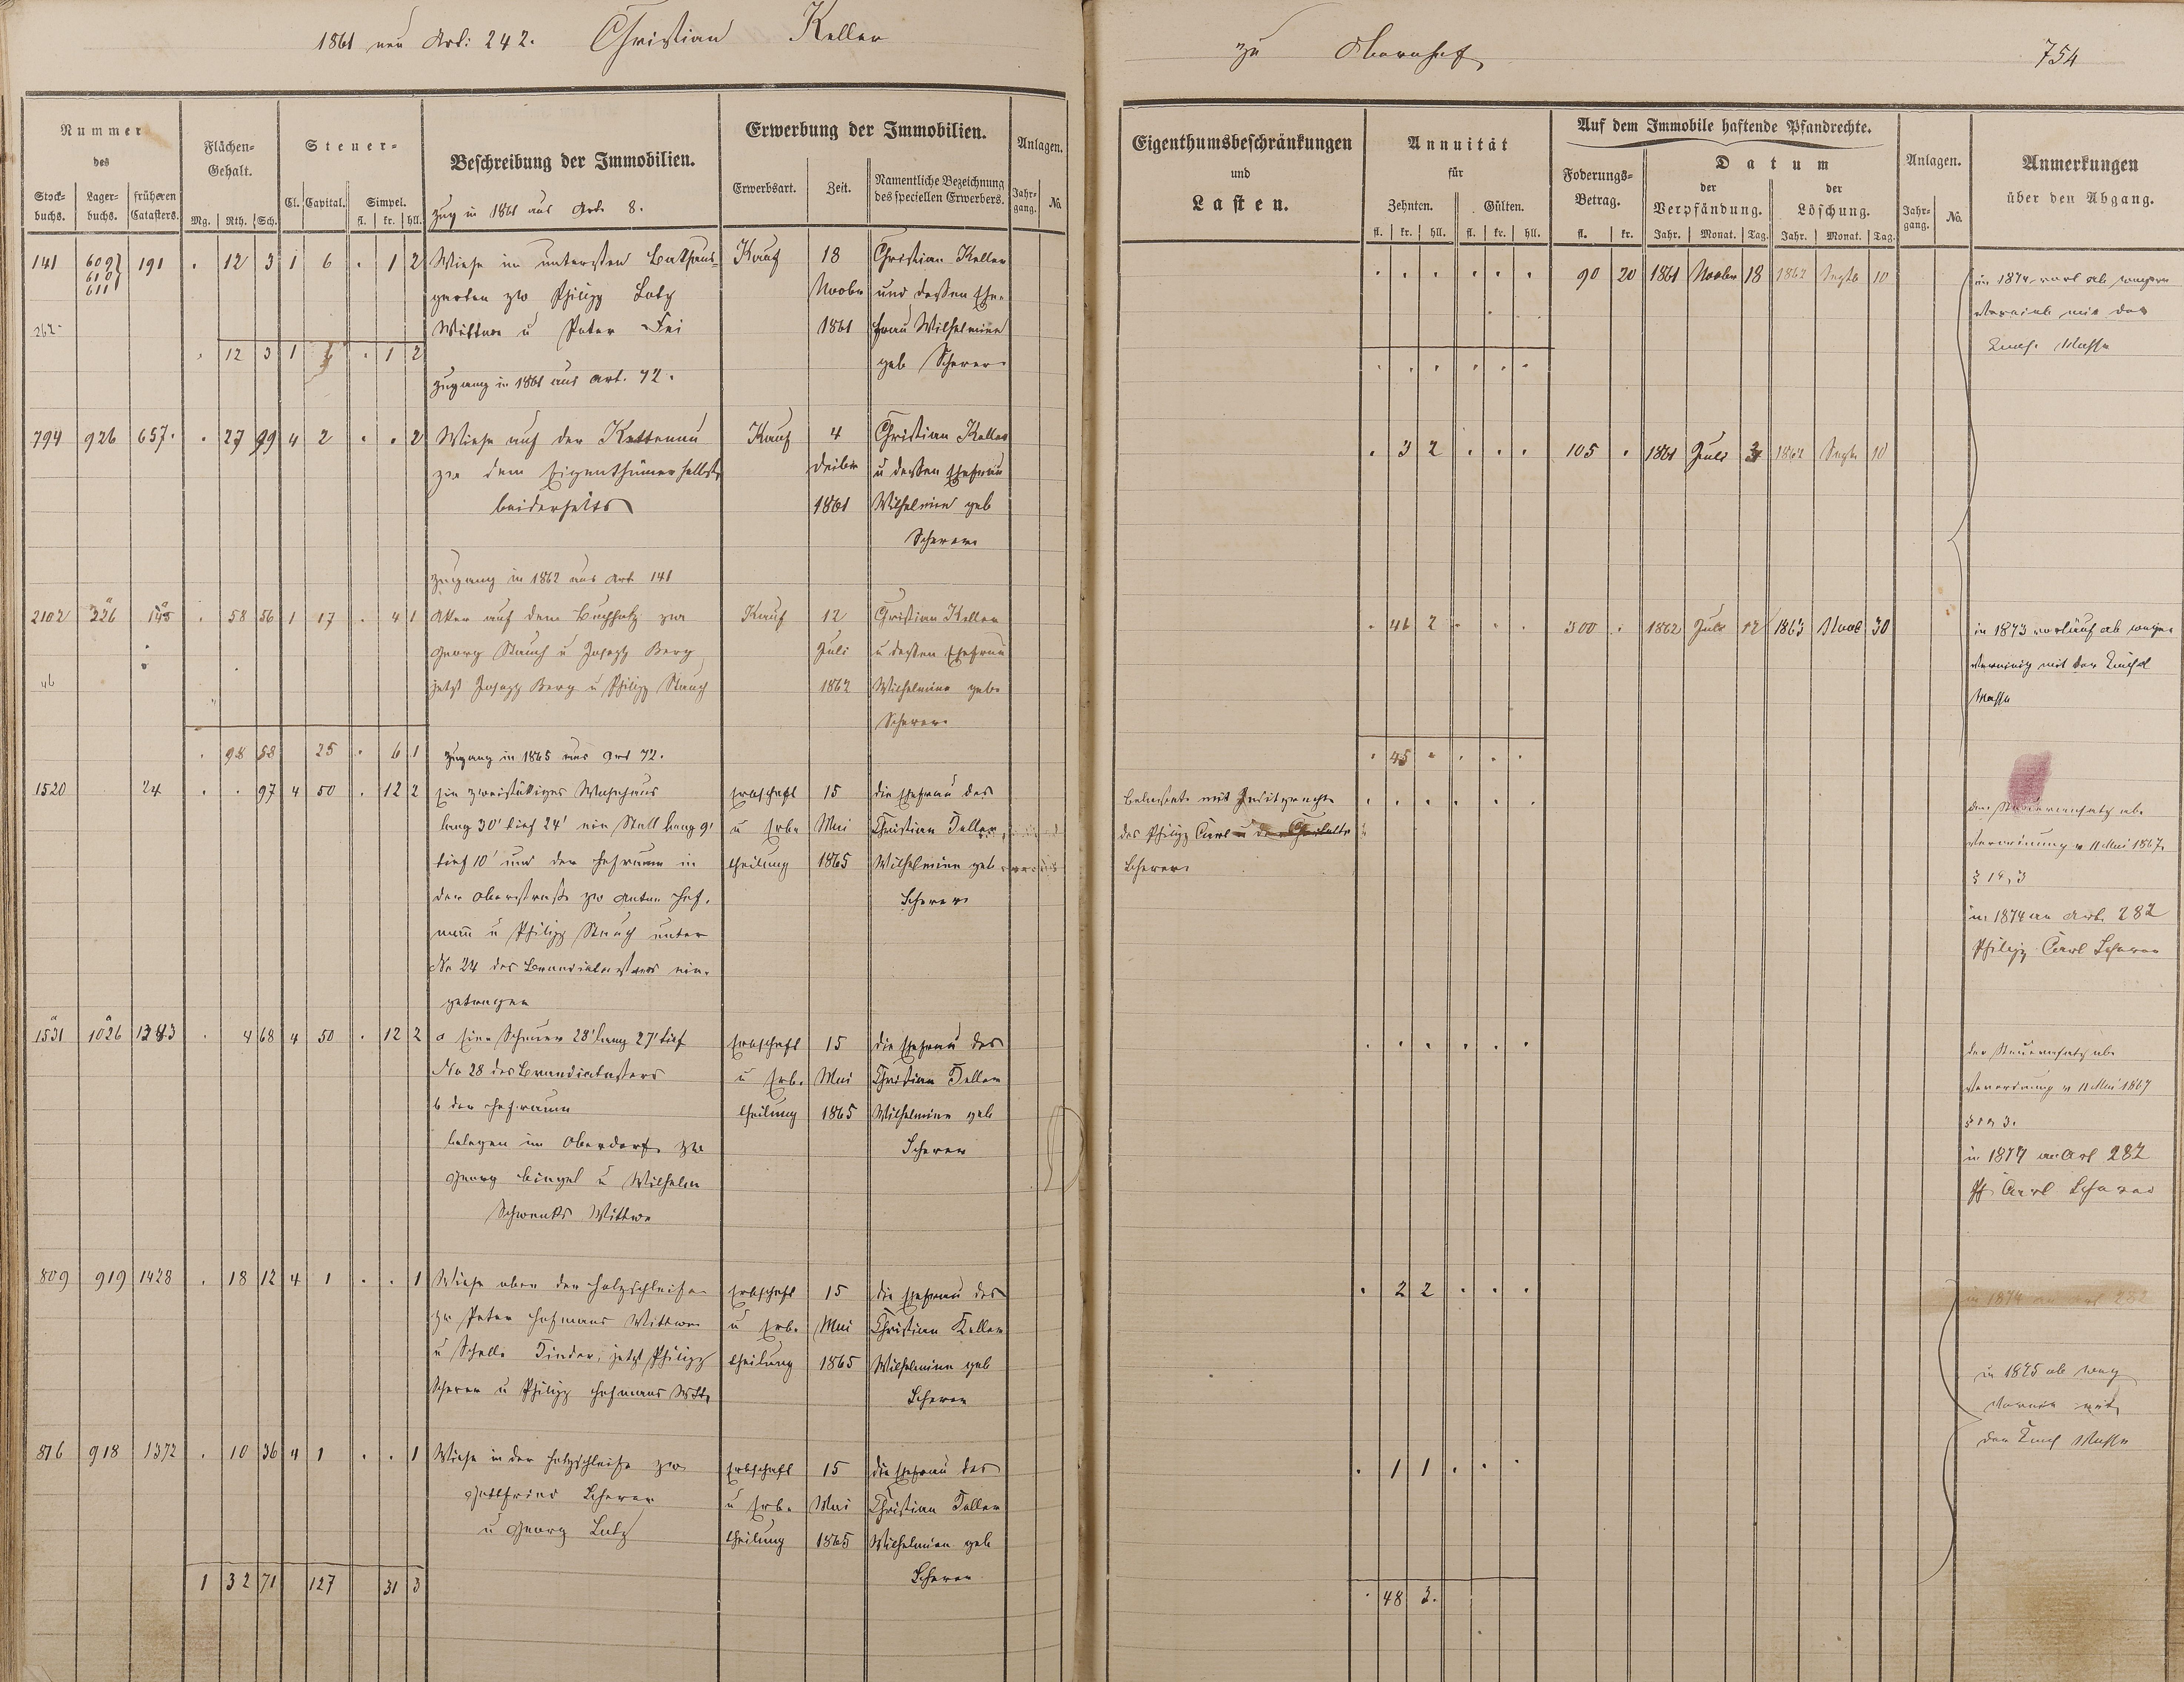 1861 neu Art: 242. Christian Keller
zu Obernhof
754
Nummer
des
Stock-
buchs.
Lager-
buchs.
früheren
Catasters.
Flächen-
Gehalt.
Mg. Rth. Sch.
Steuer-
Cl. Capital. Simpel.
fl. kr. hll.
Beschreibung der Immobilien.
Erwerbung der Immobilien.
Erwerbsart. Zeit. Namentliche Bezeichnung
des speciellen Erwerbers.
Anlagen.
Jahr-
gang. No.
zug in 1861 aus Art. 8.
141 609 191 . 12 3 1 6 . 1 2 Wiese im untersten Backhaus- Kauf 18 Christian Keller
610
611
garten zw Philipp Lotz Novbr und dessen Ehe-
Wittwe u Peter 1861 frau Wilhelmine
. 12 3 1 6 . 1 2
geb Scherer
zugang in 1861 aus art. 72.
794 926 657. . 27 99 4 2 . . 2 Wiese auf der Kettenau Kauf 4 Christian Keller
zw dem Eigenthümer selbst u dessen Ehefrau
beiderseits 1861 Wilhelmine geb
Scherer
zugang in 1862 aus Art 141
2102 326 . 58 56 1 17 . 4 1 Acker auf dem Buchholz zw Kauf 12 Christian Keller
Georg Stauch u Joseph Berg Juli u dessen Ehefrau
jetzt Joseph Berg u Philipp Stauch 1862 Wilhelmine geb
Scherer
. 98 58 25 . 6 1 zugang in 1865 aus Art 72.
1520 24 . . 97 4 50 . 12 2 Ein zweistökiges Wohnhaus Erbschaft 15 die Ehefrau des
lang 30' tief 24' ein Stall lang 9' u Erb- Mai Christian Keller,
tief 10' und der Hofraum in theilung 1865 Wilhelmine geb
der Oberstraße zw Anton Hof- Scherer
mann u Philipp Stauch unter
No 24 des Brandcatasters ein-
getragen
1531 1026 1383 . 4 68 4 50 . 12 2 a Eine Scheuer 28' lang 27' tief Erbschaft 15 die Ehefrau des
No 28 des Brandcatasters u Erb- Mai Christian Keller
b der Hofraum theilung 1865 Wilhelmine geb
belegen im Oberdorf zw Scherer
Georg Bingel u Wilhelm
Schwenks Wittwe
809 919 1428 . 18 12 4 1 . . 1 Wiese oben der Holzschleife Erbschaft 15 die Ehefrau des
zw Peter Hofmanns Wittwe u Erb- Mai Christian Keller
u Schells Kinder, jetzt Philipp theilung 1865 Wilhelmine geb
Scherer u Philipp Hofmanns Wtt. Scherer
816 918 1372 . 10 36 4 1 . . 1 Wiese in der Holzschleife zw Erbschaft 15 die Ehefrau des
Gottfried Scherer u Erb- Mai Christian Keller
u Georg Lotz theilung 1865 Wilhelmine geb
Scherer
1 32 71 127 31 3
Eigenthumsbeschränkungen
und
Lasten.
Annuität
für
Zehnten. Gülten.
fl. kr. hll. fl. kr. hll.
Auf dem Immobile haftende Pfandrechte.
Foderungs-
Betrag.
fl. kr.
Datum
der
Verpfändung.
Jahr. Monat. Tag.
der
Löschung.
Jahr. Monat. Tag.
Anlagen.
Jahr-
gang. No.
Anmerkungen
über den Abgang.
. . . . . . 90 20 1861 Novbr 18 1862 Septb 10
. 3 2 . . . 105 . 1861 Juli 1862 Septb 10
. 41 2 . . . 300 . 1862 Juli 12 1863 Novb 30
in 1873 vorläuf ab wegen
Vereinig mit der
Masse
. 45 . . . .
des Philipp Carl
Scherer
Verordnung v 11 Mai 1867
in 1874 an Art. 282
Philipp Carl Scherer
der Steueransatz ab.
Verordnung v 11 Mai 1867
in 1874 an Art 282
Ph Carl Scherer
. 2 2 . . .
in 1874 an Art 282
in 1875 ab weg
. 1 1 . . .
. 48 3.